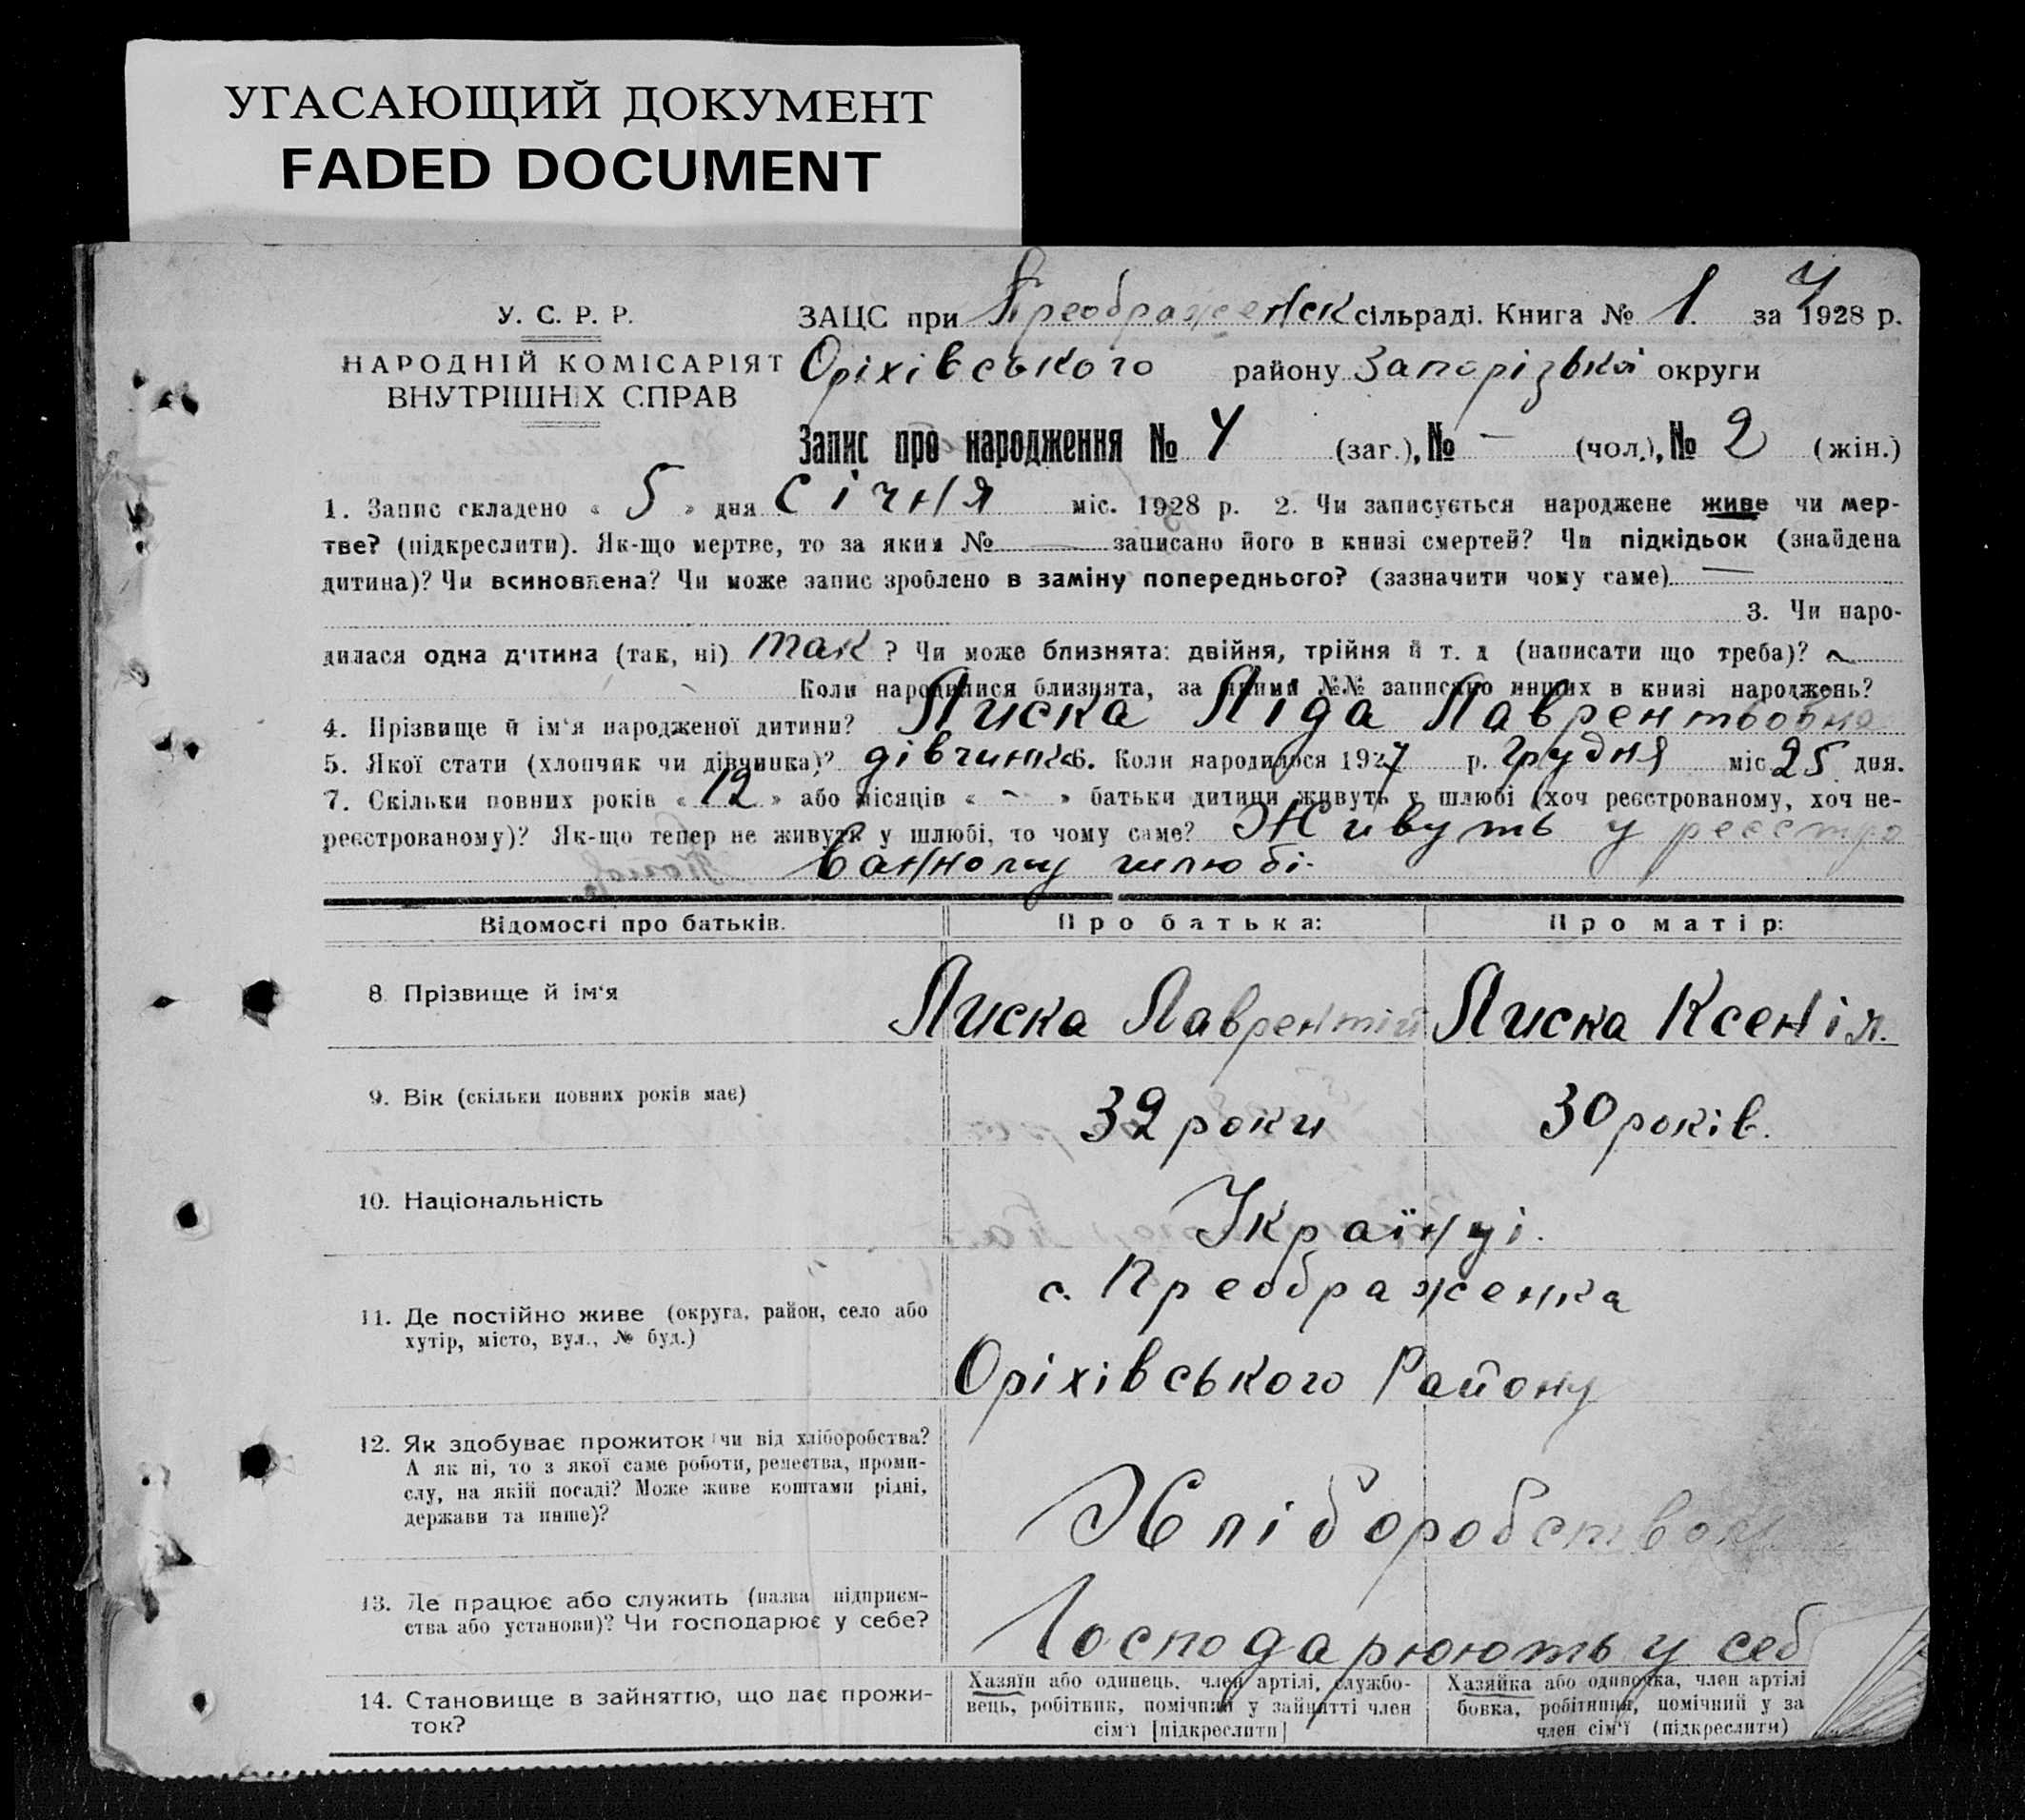 УГАСАЮЩИЙ ДОКУМЕНТ
FADED DOCUMENT
У. С. Р. Р.
НАРОДНІЙ КОМІСАРІЯТ
ВНУТРІШНІХ СПРАВ
4
ЗАЦС при Преображенськ сільраді. Книга № 1. за 1928 р.
Оріхівського району Запорізької округи
Запис про народження № 4 (заг.), № — (чол.), № 2 (жін.)
1. Запис складено « 5 » дня Січня міс. 1928 р. 2. Чи записується народжене живе чи мер-
тве? (підкреслити). Як-що мертве, то за яким № — записано його в книзі смертей? Чи підкідьок (знайдена
дитина)? Чи всиновлена? Чи може запис зроблено в заміну попереднього? (зазначити чому саме) —
3. Чи наро-
дилася одна дитина (так, ні) так ? Чи може близнята: двійня, трійня й т. д (написати що треба)? ~
Коли народилися близнята, за якими №№ записано инших в книзі народжень?
4. Прізвище й ім'я народженої дитини? Лиска Ліда Лаврентьовна
5. Якої стати (хлопчик чи дівчинка)? дівчинка 6. Коли народилося 1927 р. Грудня міс 25 дня.
7. Скільки повних років « 12 » або місяців « ~ » батьки дитини живуть у шлюбі (хоч реєстрованому, хоч не-
реєстрованому)? Як-що тепер не живуть у шлюбі, то чому саме? Живуть у реєстро
ванному шлюбі.
Відомості про батьків. Про батька: Про матір:
8. Прізвище й ім'я Лиска Лаврентій Лиска Ксенія.
9. Вік (скільки повних років має) 32 роки 30 років.
10. Національність Українці.
11. Де постійно живе (округа, район, село або
хутір, місто, вул., № буд.)
с. Преображенка
Оріхівського Району
12. Як здобуває прожиток чи від хліборобства?
А як ні, то з якої саме роботи, ремества, проми-
слу, на якій посаді? Може живе коштами рідні,
держави та инше)?
Хліборобством
13. Де працює або служить (назва підприєм-
ства або установи)? Чи господарює у себе?
Господарюють у себ
14. Становище в зайняттю, що дає прожи-
ток?
Хазяїн або одинець, член артілі, службо-
вець, робітник, помічний у зайнятті член
сім'ї [підкреслити]
Хазяйка або одиночка, член артілі
бовка, робітниця, помічний у за
член сім'ї (підкреслити)